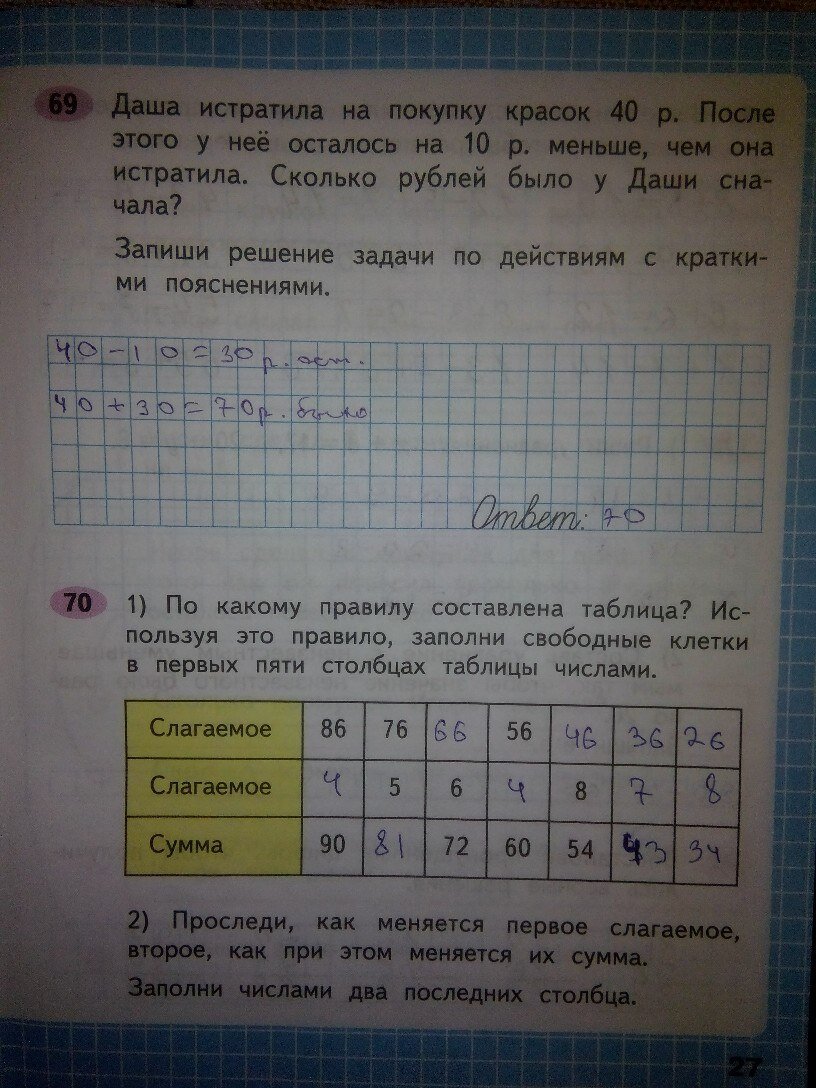 69 Даша истратила на покупку красок 40 р. После
этого у неё осталось на 10 р. меньше, чем она
истратила. Сколько рублей было у Даши сна-
чала?
Запиши решение задачи по действиям с кратки-
ми пояснениями.
40-10=30р. ост.
40+30=70р. было
Ответ: 70
70 1) По какому правилу составлена таблица? Ис-
пользуя это правило, заполни свободные клетки
в первых пяти столбцах таблицы числами.
Слагаемое 86 76 66 56 46 36 26
Слагаемое 4 5 6 4 8 7 8
Сумма 90 81 72 60 54 43 34
2) Проследи, как меняется первое слагаемое,
второе, как при этом меняется их сумма.
Заполни числами два последних столбца.
27